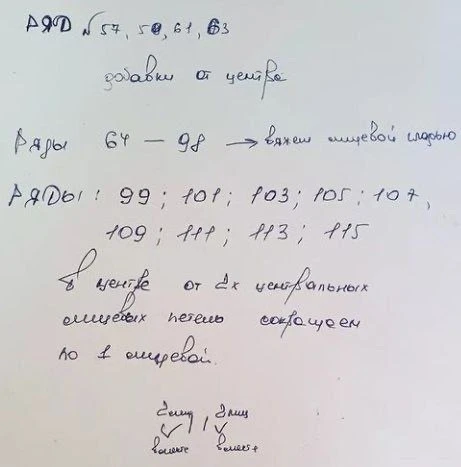 РЯД № 57, 59, 61, 63
добавки от центра
Ряды 64 — 98 → вяжем лицевой гладью
РЯДЫ: 99; 101; 103; 105; 107,
109; 111; 113; 115
В центре от 2х центральных
лицевых петель сокращаем
по 1 лицевой.
2 лиц | | 2 лиц
вместе вместе